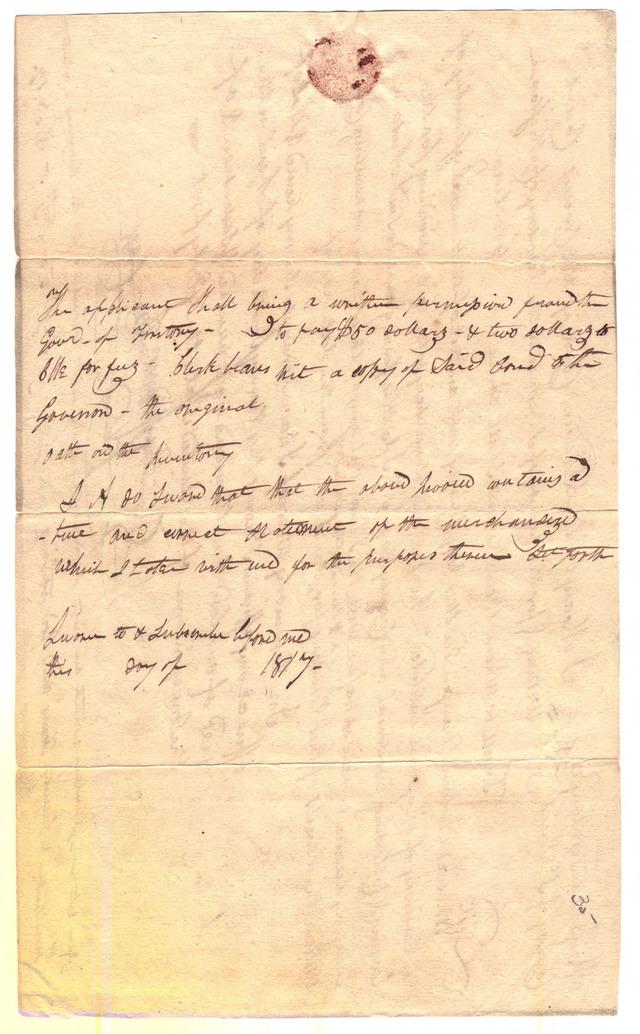 The applicant shall bring a written permission from the
Govr. of Territory - & to pay $50 dollars - & two dollars to
Clk for fees - Clerk leaves a copy of said bond to the
Governor - the original
oath on the Inventory
I A do Swore that that the above contains a
true and correct statement of the merchandize
which I take with me for the purposes therein Set forth
Sworn to & Subscribe before me
this day of 1817-
30-